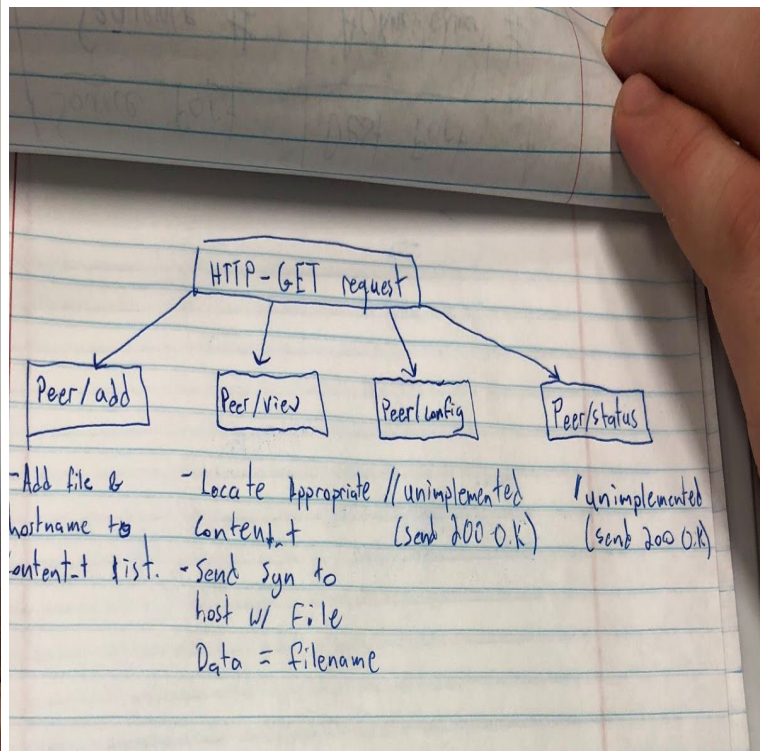 HTTP-GET request
Peer/add
Peer/view
Peer/config
Peer/status
- Add file &
hostname to
content_t list.
- Locate Appropriate
content_t
- Send Syn to
host w/ File
Data = filename
// unimplemented
(send 200 O.K)
/ unimplemented
(send 200 O.K)